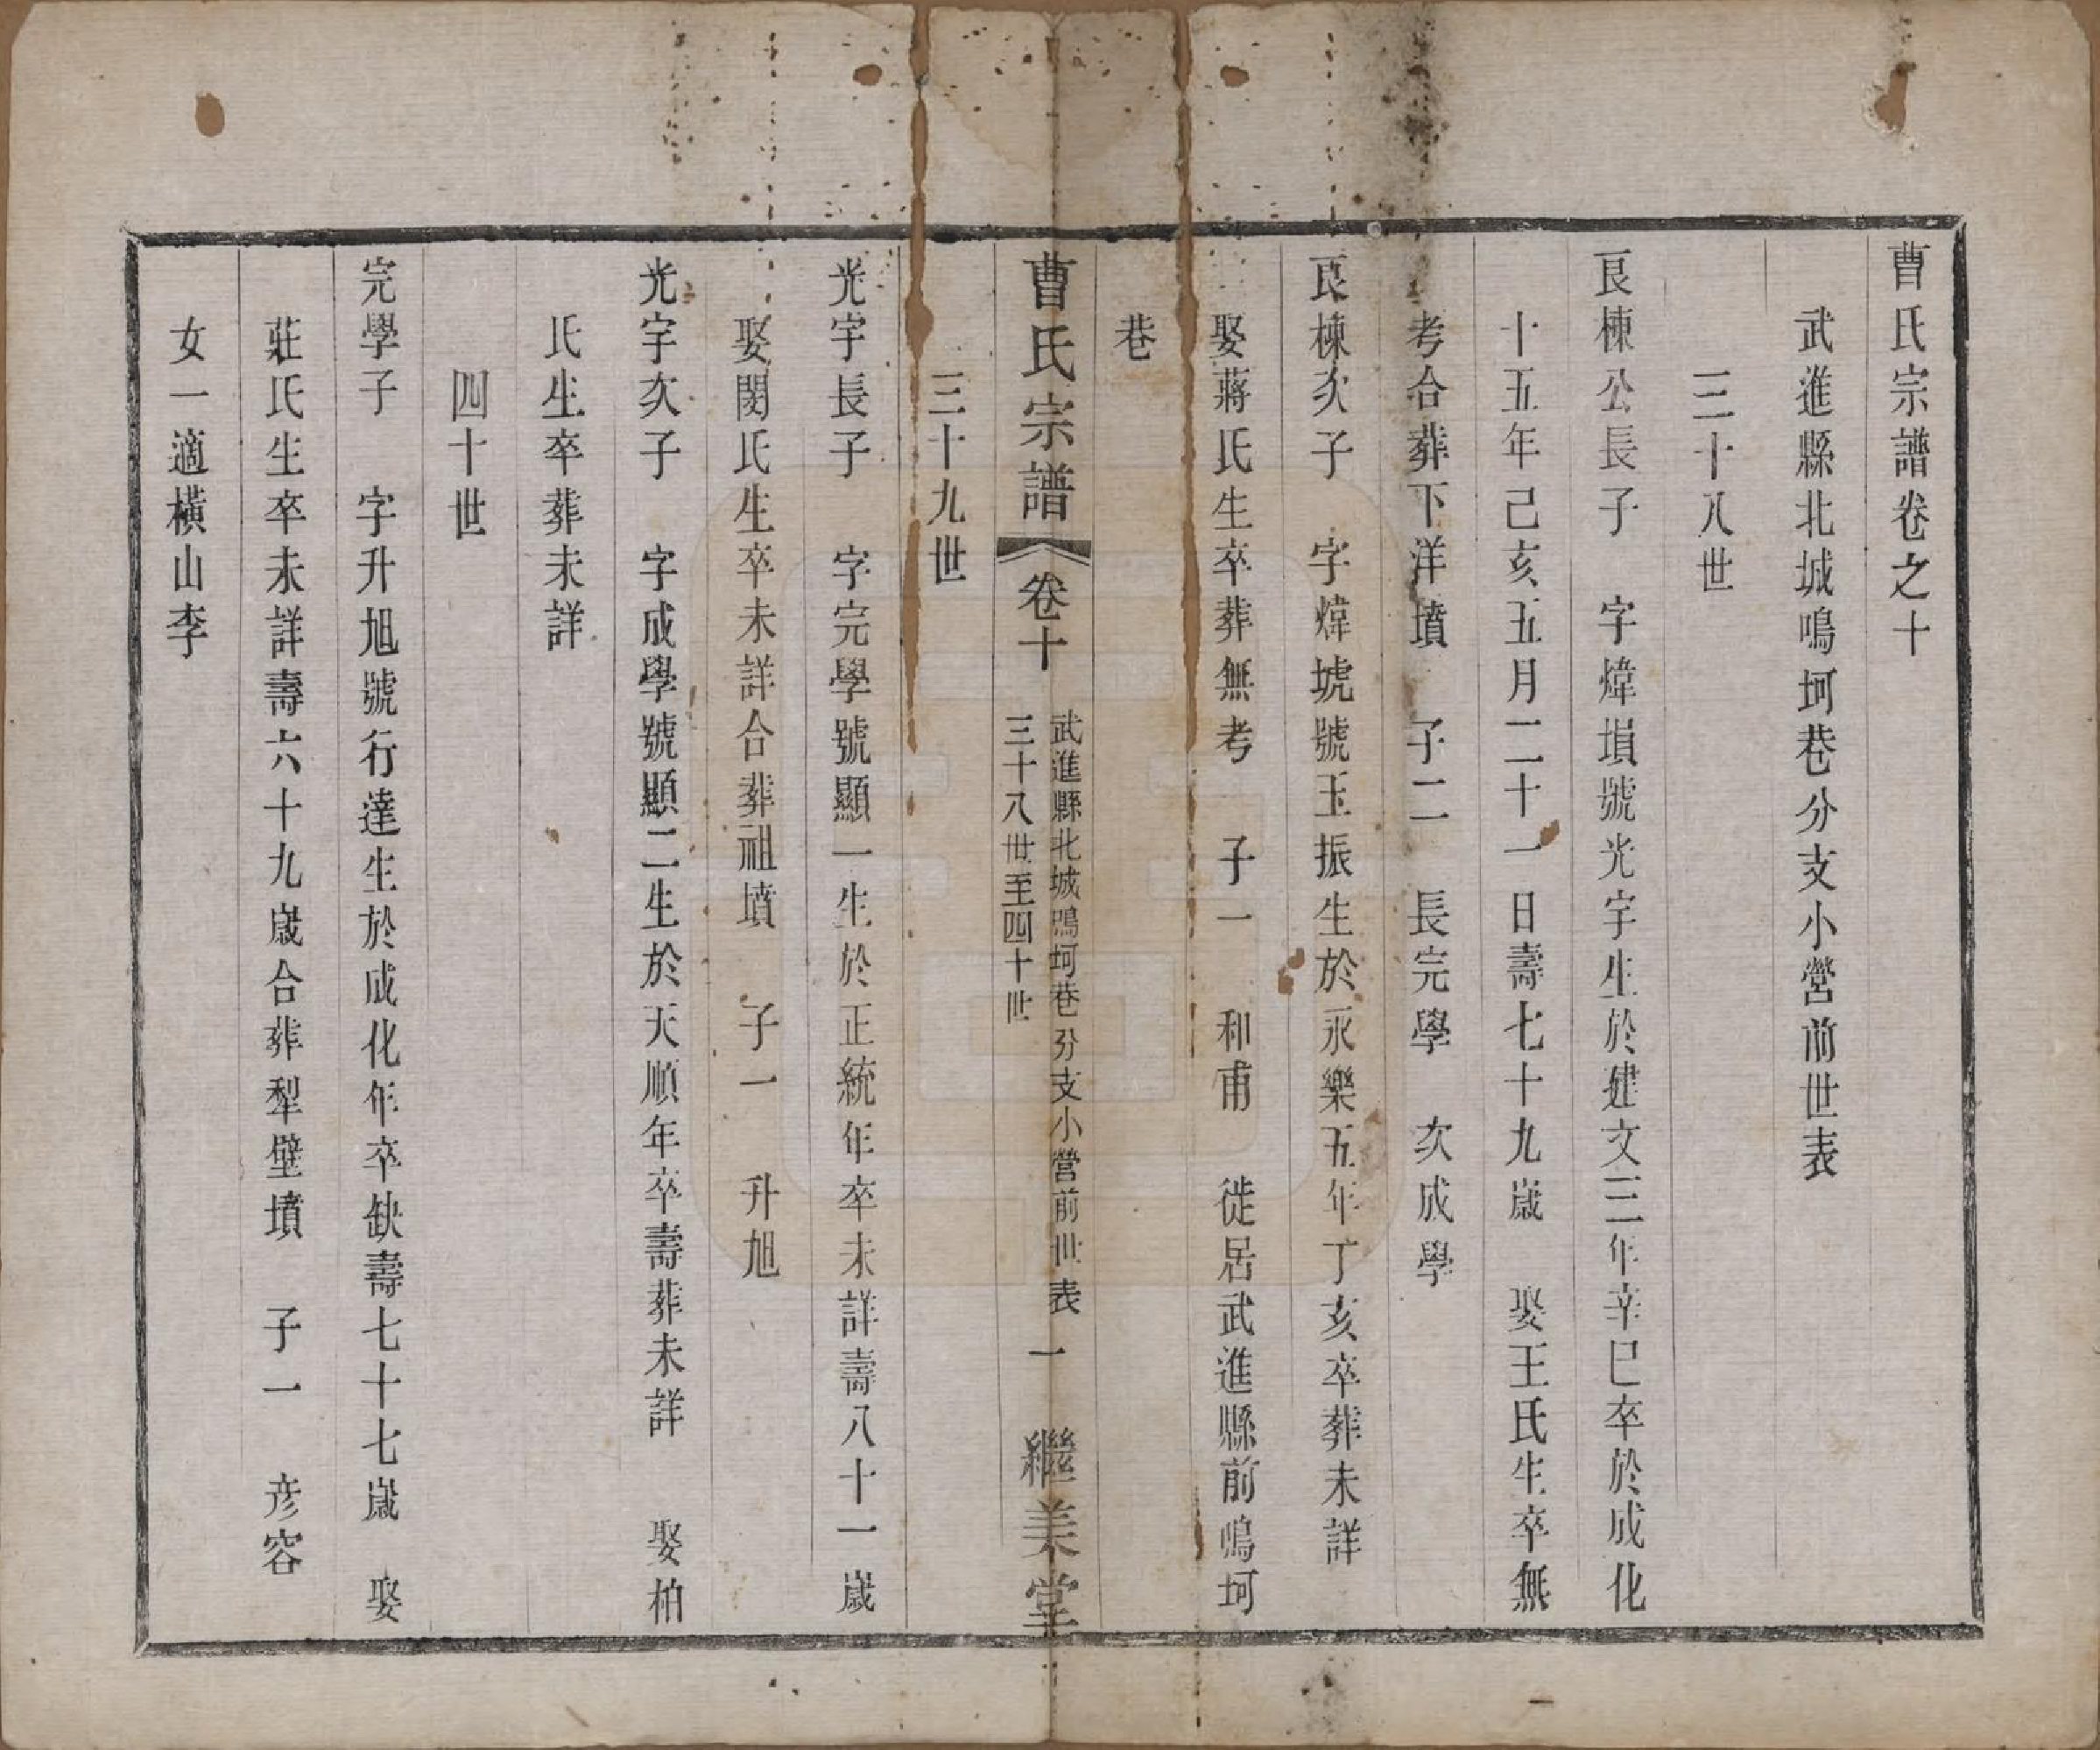 曹氏宗譜卷之十
武進縣北城鳴坷巷分支小營前世表
三十八世
艮棟公長子　字煒塤號光宇生於建文三年辛巳卒於成化
十五年己亥五月二十一日壽七十九歲　娶王氏生卒無
考合葬下洋墳　子二　長完學　次成學
艮棟次子　字煒㙈號玉振生於永樂五年丁亥卒葬未詳
娶蔣氏生卒葬無考　子一　和甫　徙居武進縣前鳴坷
巷
曹氏宗譜　卷十　武進縣北城鳴坷巷分支小營前世表　一　繼美堂
三十八世至四十世
三十九世
光宇長子　字完學號顯一生於正統年卒未詳壽八十一歲
娶閔氏生卒未詳合葬祖墳　子一　升旭
光宇次子　字成學號顯二生於天順年卒壽葬未詳　娶柏
氏生卒葬未詳
四十世
完學子　字升旭號行達生於成化年卒缺壽七十七歲　娶
莊氏生卒未詳壽六十九歲合葬犁壁墳　子一　彥容
女一適橫山李